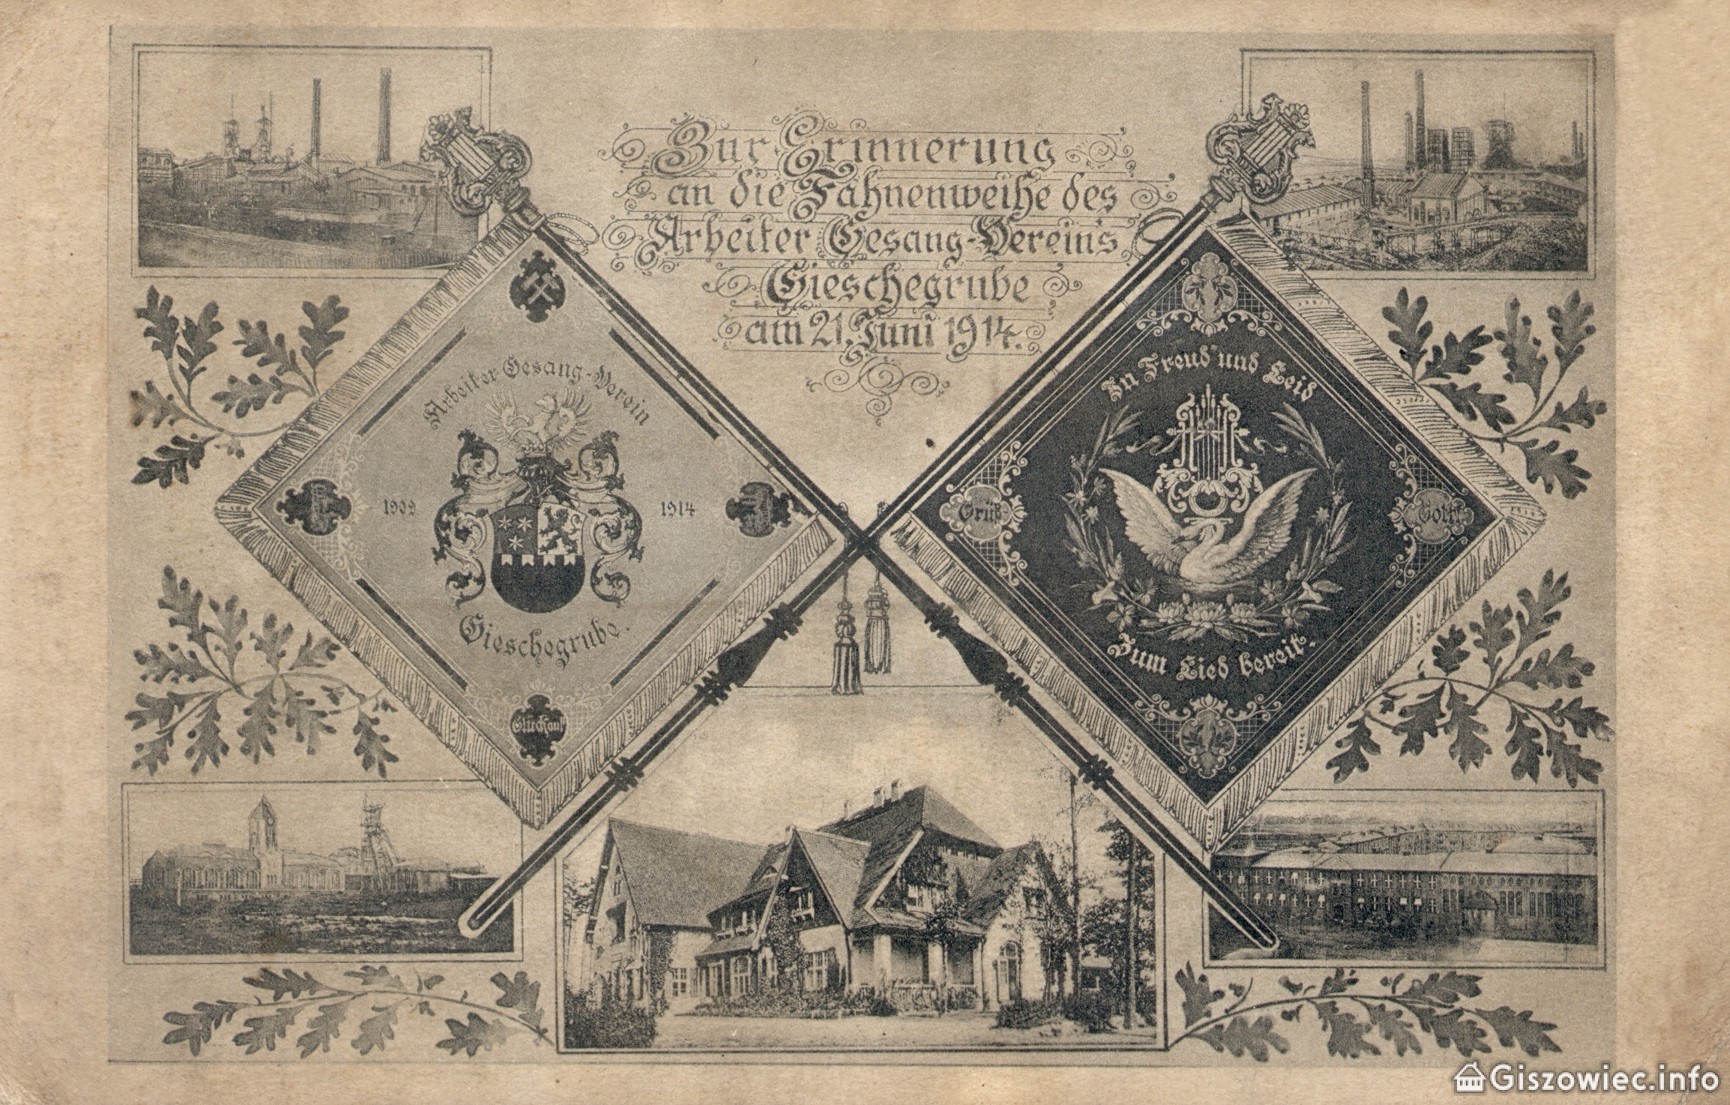 Zur Erinnerung
an die Fahnenweihe des
Arbeiter Gesang-Vereins
Gieschegrube
am 21. Juni 1914.
Arbeiter Gesang-Verein
1909
1914
Gieschegrube.
Glückauf
In Freud und Leid
Grüß
Gott!
Zum Lied bereit.
Giszowiec.info